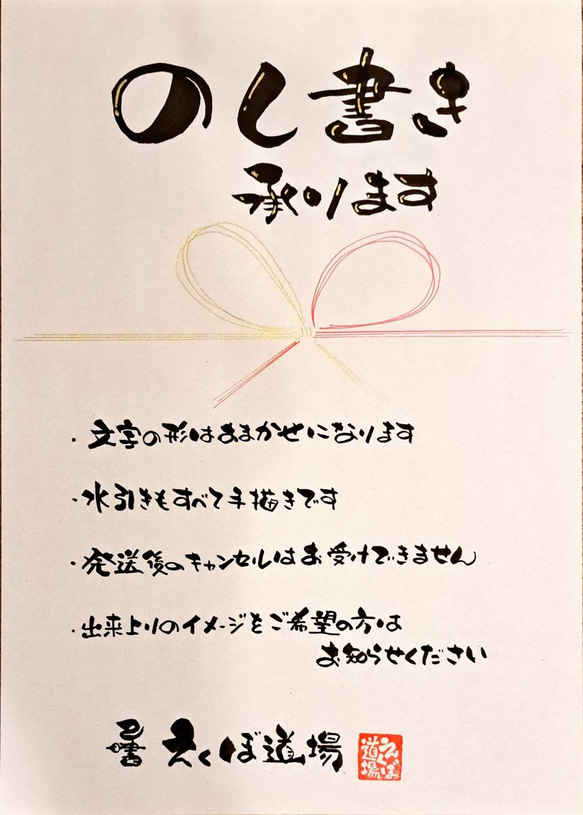 のし書き
承ります
・文字の形はおまかせになります
・水引きもすべて手描きです
・発送後のキャンセルはお受けできません
・出来上りのイメージをご希望の方は
お知らせください
己書 えくぼ道場
えくぼ道場